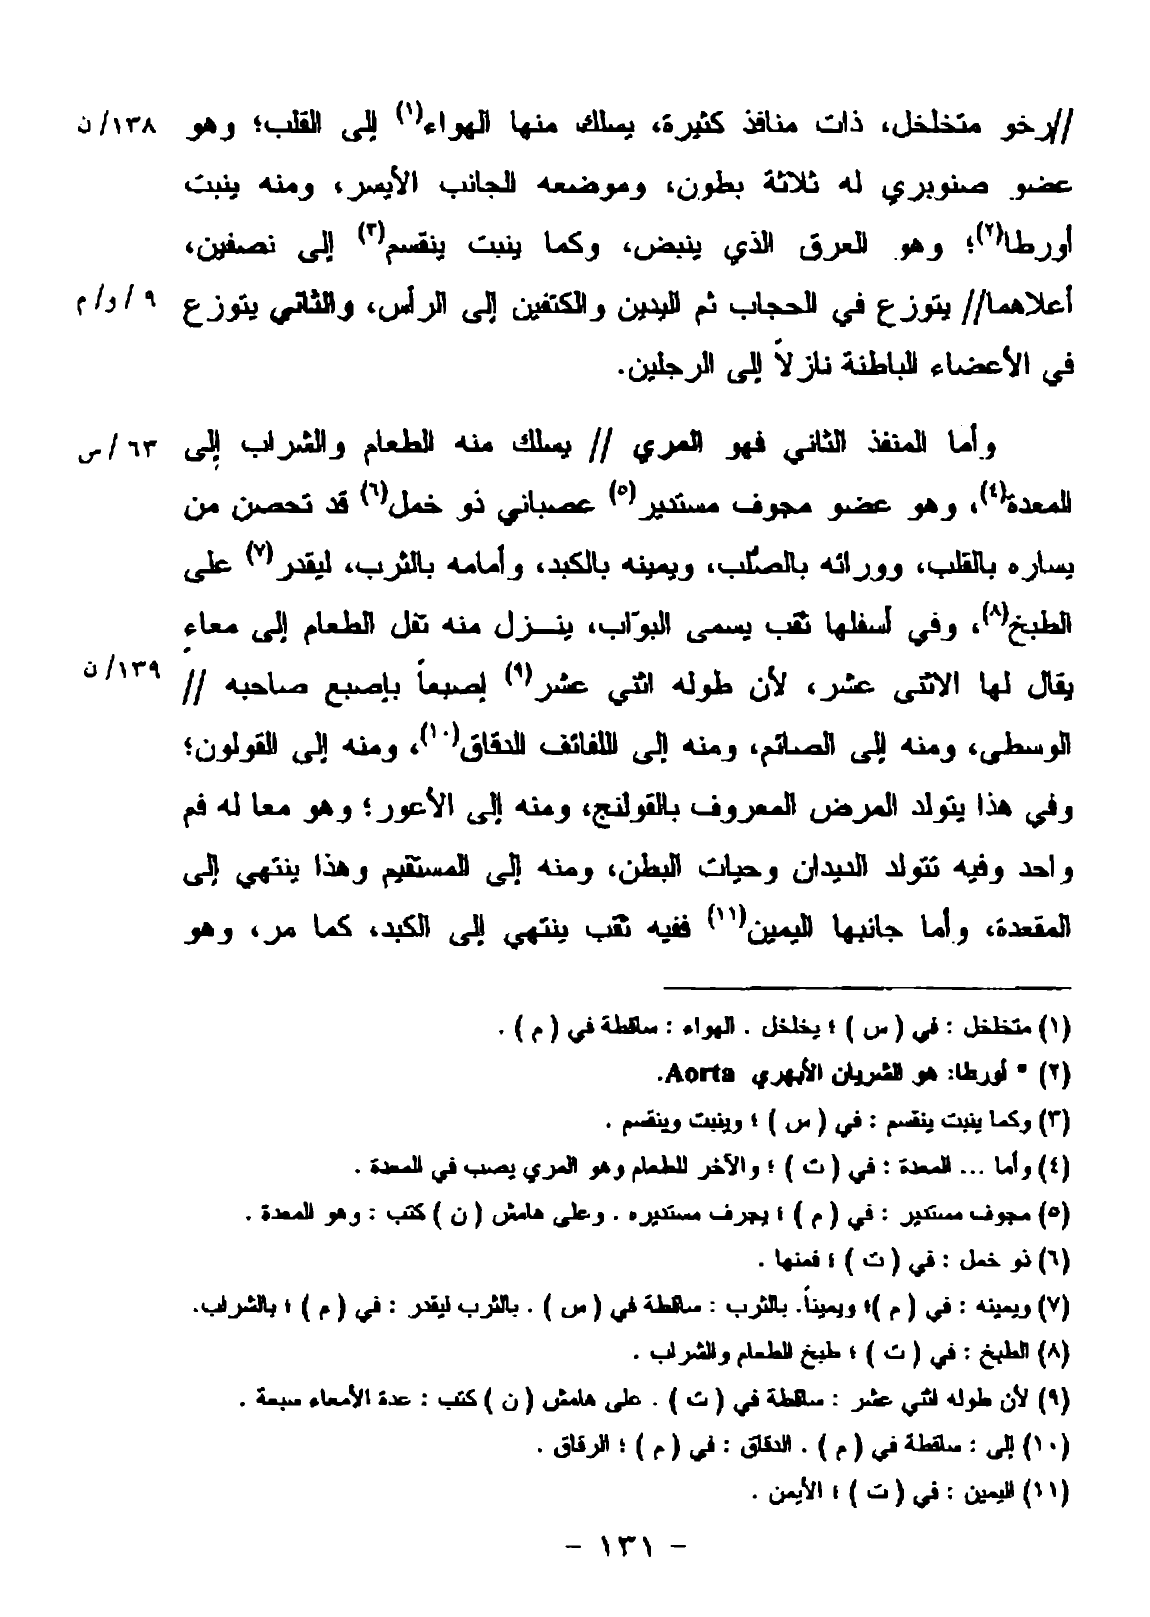 //رخو متخلخل، ذات منافذ كثيرة، يسلك منها الهواء(١) إلى القلب؛ وهو ١٣٨/ن
عضو صنوبري له ثلاثة بطون، وموضعه الجانب الأيسر، ومنه ينبت
أورطا(٢)؛ وهو العرق الذي ينبض، وكما ينبت ينقسم(٣) إلى نصفين،
أعلاهما// يتوزع في الحجاب ثم اليدين والكتفين إلى الرأس، والثاني يتوزع ٩/و/م
في الأعضاء الباطنة نازلاً إلى الرجلين.
وأما المنفذ الثاني فهو المري // يسلك منه الطعام والشراب إلى ٦٣/س
المعدة(٤)، وهو عضو مجوف مستدير(٥) عصباني ذو خمل(٦) قد تحصن من
يساره بالقلب، وورائه بالصلّب، ويمينه بالكبد، وأمامه بالثرب، ليقدر(٧) على
الطبخ(٨)، وفي أسفلها ثقب يسمى البوّاب، ينـــزل منه ثفل الطعام إلى معاءٍ
يقال لها الاثنى عشر، لأن طوله اثني عشر(٩) إصبعاً بإصبع صاحبه // ١٣٩/ن
الوسطى، ومنه إلى الصائم، ومنه إلى اللفائف الدقاق(١٠)، ومنه إلى القولون؛
وفي هذا يتولد المرض المعروف بالقولنج، ومنه إلى الأعور؛ وهو معا له فم
واحد وفيه تتولد الديدان وحيات البطن، ومنه إلى المستقيم وهذا ينتهي إلى
المقعدة، وأما جانبها اليمين(١١) ففيه ثقب ينتهي إلى الكبد، كما مر، وهو
(١) متخلخل : في ( س ) ؛ يخلخل . الهواء : ساقطة في ( م ) .
(٢) * أورطا: هو الشريان الأبهري Aorta.
(٣) وكما ينبت ينقسم : في ( س ) ؛ وينبت وينقسم .
(٤) وأما ... المعدة : في ( ت ) ؛ والآخر للطعام وهو المري يصب في المعدة .
(٥) مجوف مستدير : في ( م ) ؛ يجرف مستديره . وعلى هامش ( ن ) كتب : وهو المعدة .
(٦) ذو خمل : في ( ت ) ؛ فمنها .
(٧) ويمينه : في ( م )؛ ويميناً. بالثرب : ساقطة في ( س ) . بالثرب ليقدر : في ( م ) ؛ بالشراب.
(٨) الطبخ : في ( ت ) ؛ طبخ الطعام والشراب .
(٩) لأن طوله اثني عشر : ساقطة في ( ت ) . على هامش ( ن ) كتب : عدة الأمعاء سبعة .
(١٠) إلى : ساقطة في ( م ) . الدقاق : في ( م ) ؛ الرقاق .
(١١) اليمين : في ( ت ) ؛ الأيمن .
- ١٣١ -